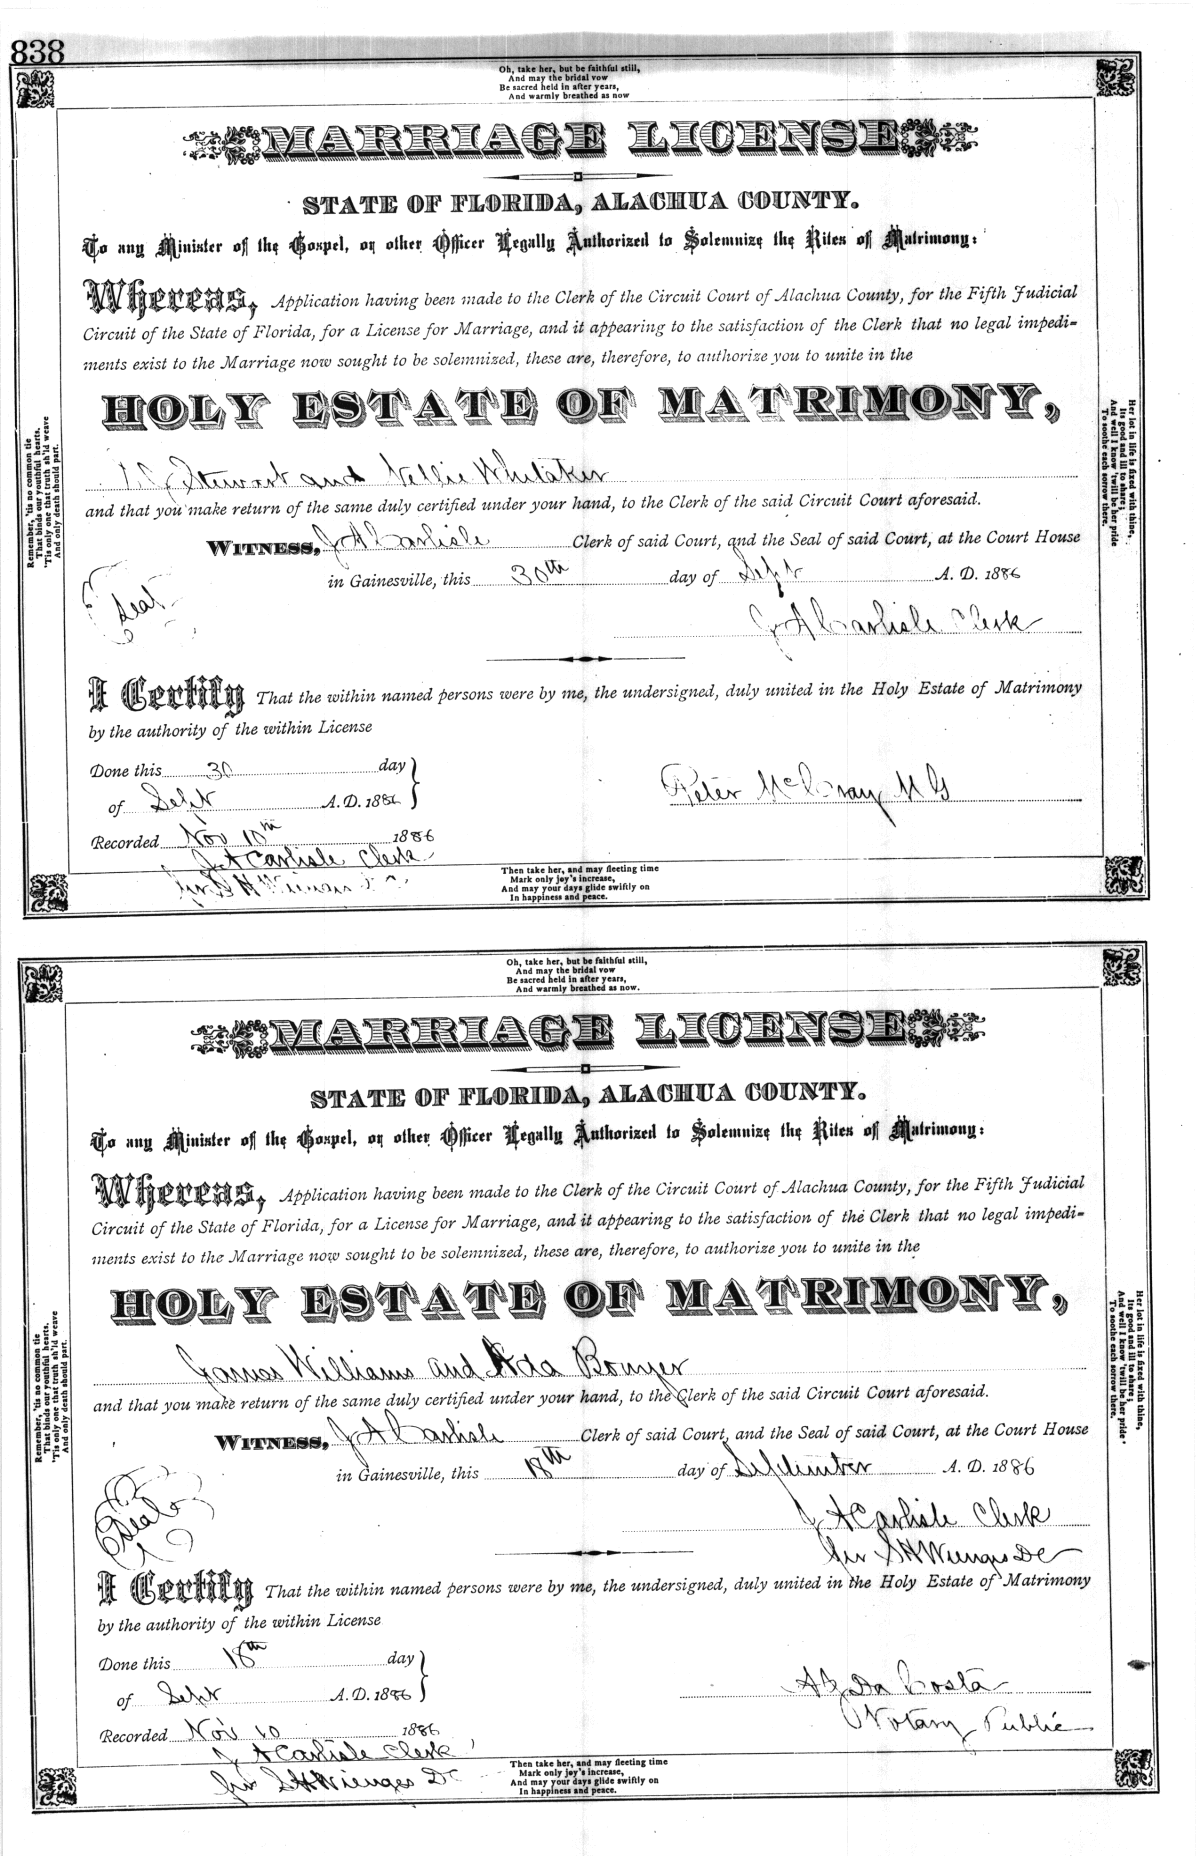 838
Oh, take her, but be faithful still,
And may the bridal vow
Be sacred held in after years,
And warmly breathed as now
MARRIAGE LICENSE
STATE OF FLORIDA, ALACHUA COUNTY.
To any Minister of the Gospel, or other Officer Legally Authorized to Solemnize the Rites of Matrimony:
Whereas, Application having been made to the Clerk of the Circuit Court of Alachua County, for the Fifth Judicial
Circuit of the State of Florida, for a License for Marriage, and it appearing to the satisfaction of the Clerk that no legal impedi-
ments exist to the Marriage now sought to be solemnized, these are, therefore, to authorize you to unite in the
HOLY ESTATE OF MATRIMONY,
Stewart and Nellie Whitaker
and that you make return of the same duly certified under your hand, to the Clerk of the said Circuit Court aforesaid.
WITNESS, J A Carlisle Clerk of said Court, and the Seal of said Court, at the Court House
in Gainesville, this 30th day of Sept A. D. 1886
Seal
J A Carlisle Clerk
I Certify That the within named persons were by me, the undersigned, duly united in the Holy Estate of Matrimony
by the authority of the within License
Done this 30 day
of Sept A. D. 1886
Peter McCray M G
Recorded Nov 10th 1886
J A Carlisle Clerk
Per S H Wienges D C
Then take her, and may fleeting time
Mark only joy's increase,
And may your days glide swiftly on
In happiness and peace.
Remember, 'tis no common tie
That binds our youthful hearts.
'Tis only one that truth sh'ld weave
And only death should part.
Her lot in life is fixed with thine,
Its good and ill to share;
And well I know 'twill be her pride
To soothe each sorrow there.
Oh, take her, but be faithful still,
And may the bridal vow
Be sacred held in after years,
And warmly breathed as now.
MARRIAGE LICENSE
STATE OF FLORIDA, ALACHUA COUNTY.
To any Minister of the Gospel, or other Officer Legally Authorized to Solemnize the Rites of Matrimony:
Whereas, Application having been made to the Clerk of the Circuit Court of Alachua County, for the Fifth Judicial
Circuit of the State of Florida, for a License for Marriage, and it appearing to the satisfaction of the Clerk that no legal impedi-
ments exist to the Marriage now sought to be solemnized, these are, therefore, to authorize you to unite in the
HOLY ESTATE OF MATRIMONY,
James Williams and Ada Bouyer
and that you make return of the same duly certified under your hand, to the Clerk of the said Circuit Court aforesaid.
WITNESS, J A Carlisle Clerk of said Court, and the Seal of said Court, at the Court House
in Gainesville, this 18th day of September A. D. 1886
Seal
J A Carlisle Clerk
Per S H Wienges D C
I Certify That the within named persons were by me, the undersigned, duly united in the Holy Estate of Matrimony
by the authority of the within License
Done this 18th day
of Sept A. D. 1886
Da Costa
Notary Public
Recorded Nov 10 1886
J A Carlisle Clerk
Per S H Wienges D C
Then take her, and may fleeting time
Mark only joy's increase,
And may your days glide swiftly on
In happiness and peace.
Remember, 'tis no common tie
That binds our youthful hearts.
'Tis only one that truth sh'ld weave
And only death should part.
Her lot in life is fixed with thine,
Its good and ill to share;
And well I know 'twill be her pride
To soothe each sorrow there.